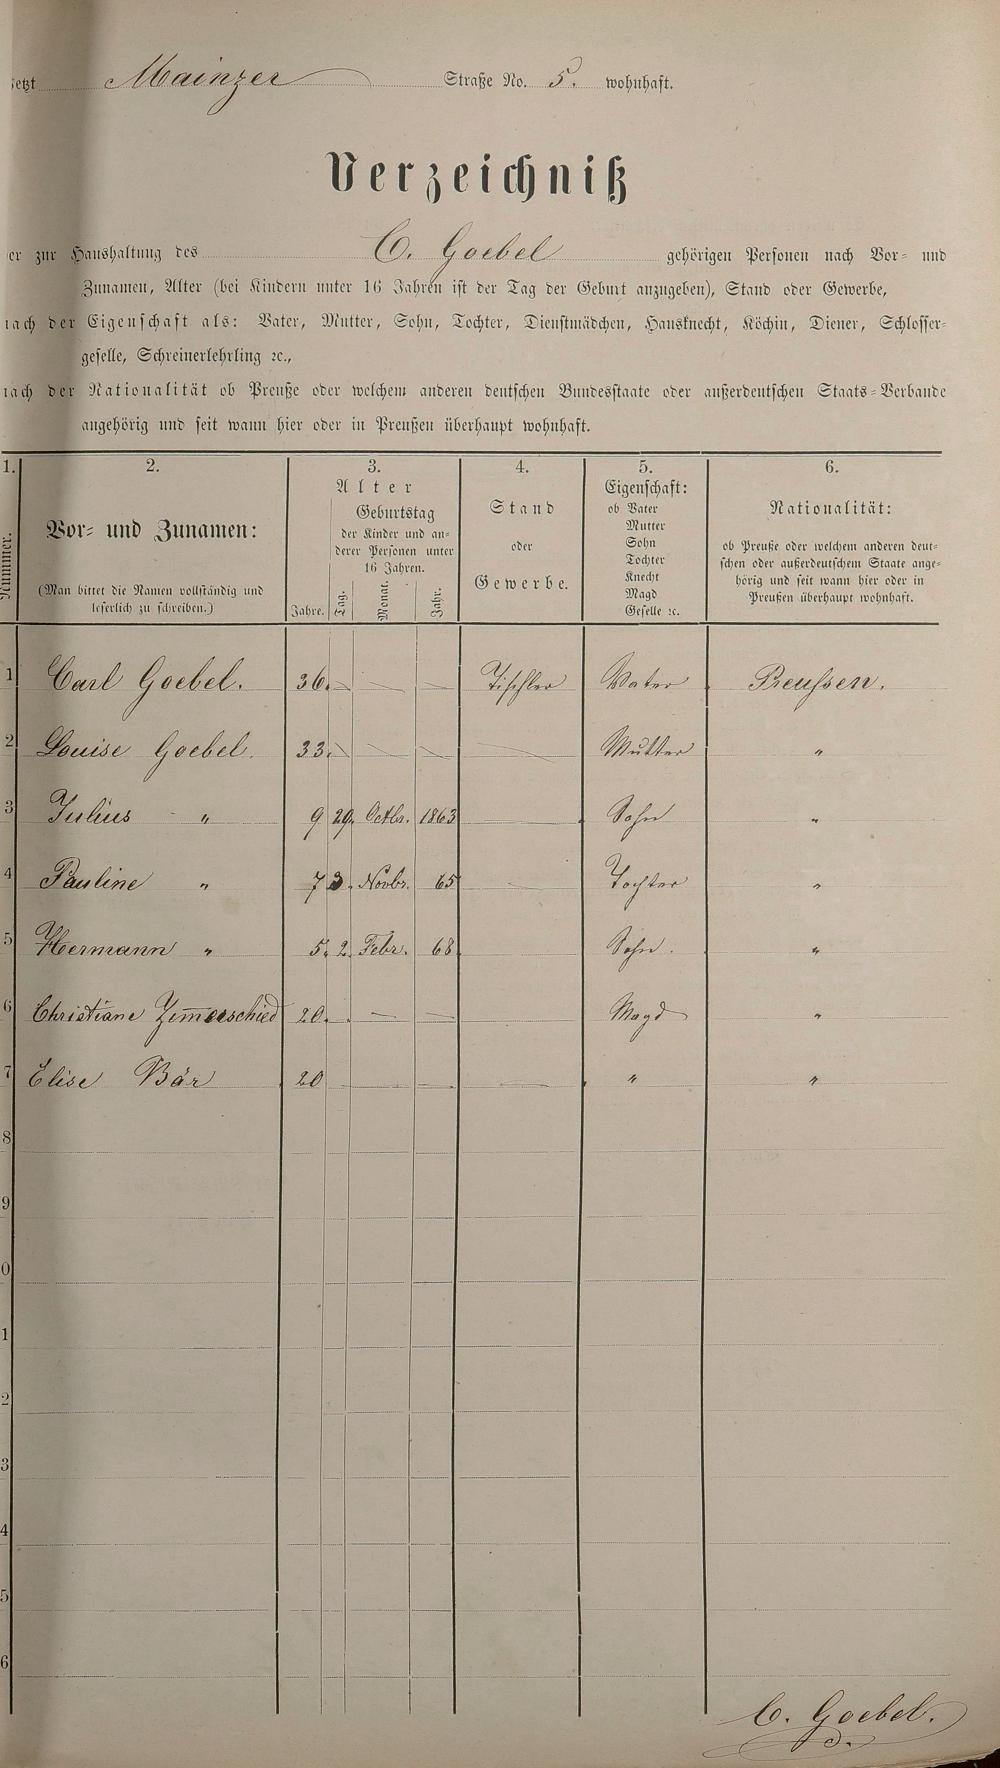 jetzt Mainzer Straße No. 5. wohnhaft.
Verzeichniß
er zur Haushaltung des C. Goebel gehörigen Personen nach Vor- und
Zunamen, Alter (bei Kindern unter 16 Jahren ist der Tag der Geburt anzugeben), Stand oder Gewerbe,
nach der Eigenschaft als: Vater, Mutter, Sohn, Tochter, Dienstmädchen, Hausknecht, Köchin, Diener, Schlosser-
geselle, Schreinerlehrling ꝛc.,
nach der Nationalität ob Preuße oder welchem anderen deutschen Bundesstaate oder außerdeutschen Staats-Verbande
angehörig und seit wann hier oder in Preußen überhaupt wohnhaft.
1. 2. 3. 4. 5. 6.
Nummer.
Vor- und Zunamen:
(Man bittet die Namen vollständig und
leserlich zu schreiben.)
Alter
Geburtstag
der Kinder und an-
derer Personen unter
16 Jahren.
Jahre. Tag. Monat. Jahr.
Stand
oder
Gewerbe.
Eigenschaft:
ob Vater
Mutter
Sohn
Tochter
Knecht
Magd
Geselle ꝛc.
Nationalität:
ob Preuße oder welchem anderen deut-
schen oder außerdeutschem Staate ange-
hörig und seit wann hier oder in
Preußen überhaupt wohnhaft.
1 Carl Goebel. 36. — — — Tischler Vater Preussen.
2 Louise Goebel. 33. — — — — Mutter "
3 Julius " 9 29. Octbr. 1863 Sohn "
4 Pauline " 7 3. Novbr. 65 — Tochter "
5 Hermann " 5. 2. Febr. 68. Sohn. "
6 Christiane Zim̅erschied 20. — — — Magd "
7 Elise Bär 20 — — " "
8
9
0
1
2
3
4
5
6
C. Goebel.